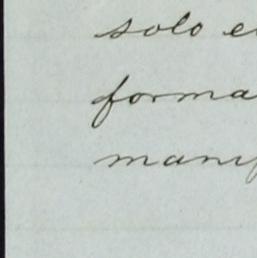 solo e
forma
manif